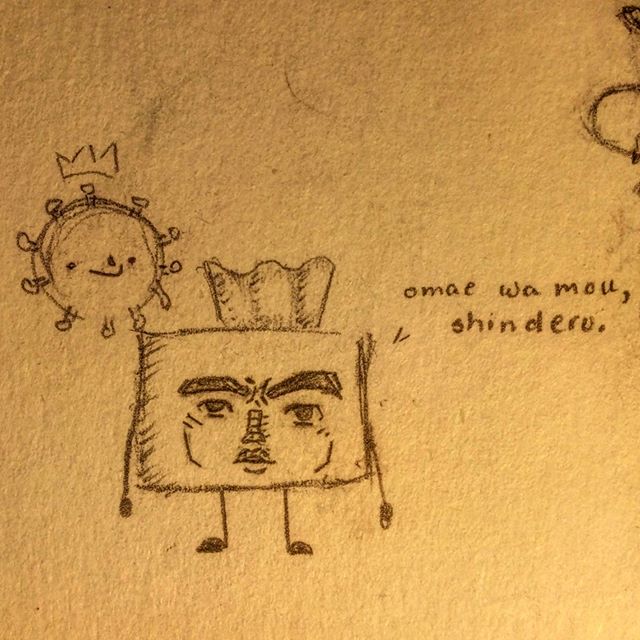 omae wa mou,
shinderu.